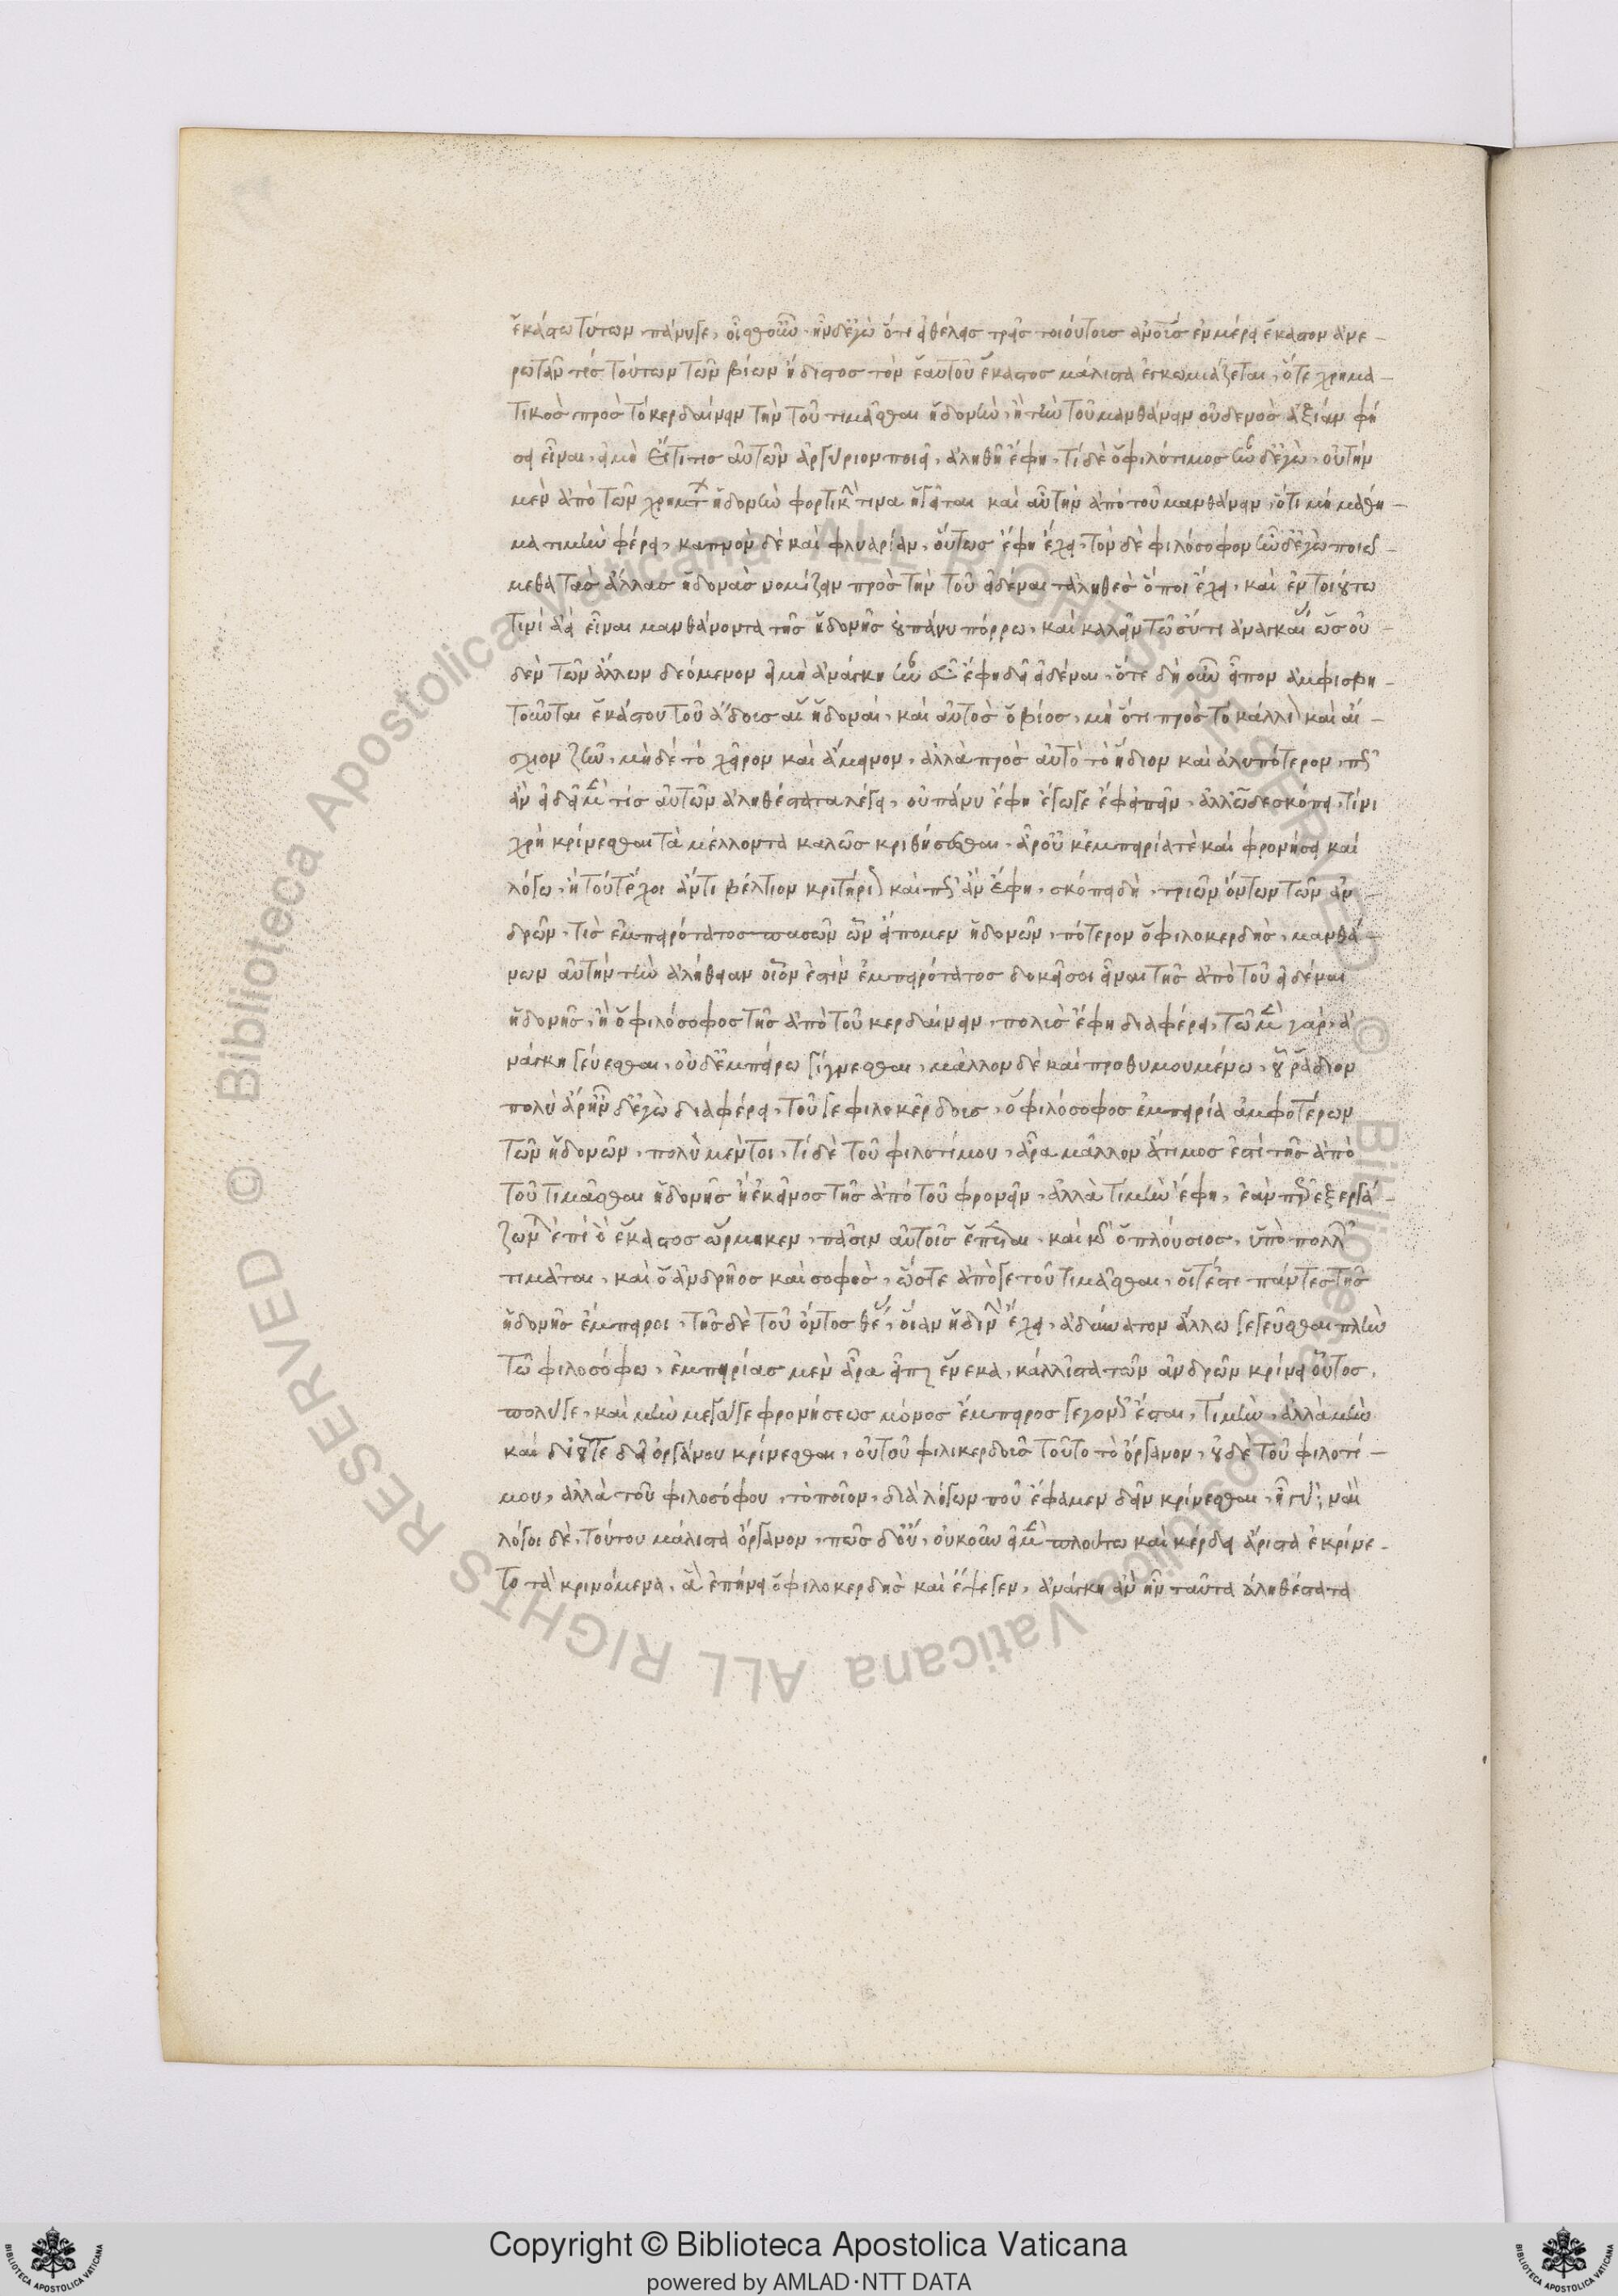 ἑκάστω τούτων, πάνυγε, οἶσθ οὖν ἦν δ ἐγὼ ὅτι εἰ θέλεις τρεῖς τοιούτους ἀνοὺς ἐν μέρει ἕκαστον ἀνε-
ρωτᾶν τίς τούτων τῶν βίων ἥδιστος τὸν ἑαυτοῦ ἕκαστος μάλιστα ἐγκωμιάζεται, ὅτε χρημα-
τικὸς πρὸς τὸ κερδαίνειν τὴν τοῦ τιμᾶσθαι ἡδονὴν, ἢ τὴν τοῦ μανθάνειν οὐδενὸς ἀξίαν φή
σει εἶναι, εἰ μὴ εἴ τι τις αὐτῶν ἀργύριον ποιεῖ, ἀληθῆ ἔφη, τί δὲ ὁ φιλότιμος ἦν δ ἐγὼ, οὐ τὴν
μὲν ἀπὸ τῶν χρημάτων ἡδονὴν φορτικὴν τινα ἡγεῖται καὶ αὖ τὴν ἀπὸ τοῦ μανθάνειν, ὅτι μὴ μάθη-
μα τιμὴν φέρει, καπνὸν δὲ καὶ φλυαρίαν, οὕτως ἔφη ἔχει, τὸν δὲ φιλόσοφον ἦν δ ἐγὼ ποιώ-
μεθα τὰς ἄλλας ἡδονὰς νομίζειν πρὸς τὴν τοῦ εἰδέναι τἀληθὲς ὅποι ἔχει, καὶ ἐν τοιούτω
τινί ἀεὶ εἶναι μανθάνοντα τῆς ἡδονῆς οὐ πάνυ πόρρω, καὶ καλεῖν τῶ ὄντι ἀναγκαίας ὡς οὐ-
δὲν τῶν ἄλλων δεόμενον εἰ μὴ ἀνάγκη ἦν εὖ ἔφη δεῖ εἰδέναι, ὅτε δὴ οὖν εἶπον ἀμφισβη-
τοῦνται ἑκάστου τοῦ εἴδους αἱ ἡδοναί, καὶ αὐτὸς ὁ βίος, μὴ ὅτι πρὸς τὸ κάλλιον καὶ αἴ-
σχιον ζῆν, μηδὲ τὸ χεῖρον καὶ ἄμεινον, ἀλλὰ πρὸς αὐτὸ τὸ ἥδιον καὶ ἀλυπότερον, πῶς
ἂν εἰδεῖμεν τίς αὐτῶν ἀληθέστατα λέγει, οὐ πάνυ ἔφη ἔγωγε ἔχω εἰπεῖν, ἀλλ ὧδε σκόπει, τίνι
χρὴ κρίνεσθαι τὰ μέλλοντα καλῶς κριθήσεσθαι, ἆρ οὐκ ἐμπειρία τὲ καὶ φρονήσει καὶ
λόγω, ἢ τούτ ἔχοι ἄν τι βέλτιον κριτήριον καὶ πῶς ἂν ἔφη, σκόπει δὴ, τριῶν ὄντων τῶν ἀν-
δρῶν, τίς ἐμπειρότατος πασῶν ὧν εἴπομεν ἡδονῶν, πότερον ὁ φιλοκερδὴς, μανθά-
νων αὐτὴν τὴν ἀλήθειαν οἷόν ἐστιν ἐμπειρότατος δοκεῖ σοι εἶναι τῆς ἀπὸ τοῦ εἰδέναι
ἡδονῆς, ἢ ὁ φιλόσοφος τῆς ἀπὸ τοῦ κερδαίνειν, πολὺς ἔφη διαφέρει, τῶ μὲν γὰρ, ἀ
νάγκη γεύεσθαι, οὐδ ἐμπείρω γίγνεσθαι, μᾶλλον δὲ καὶ προθυμουμένω, οὐ ῥάδιον
πολὺ ἄρ ἦν δ ἐγὼ διαφέρει, τοῦ γε φιλοκερδοῦς, ὁ φιλόσοφος ἐμπειρία ἀμφοτέρων
τῶν ἡδονῶν, πολὺ μέντοι, τί δὲ τοῦ φιλοτίμου, ἆρα μᾶλλον ἄτιμος ἐστὶ τῆς ἀπὸ
τοῦ τιμᾶσθαι ἡδονῆς ἢ ἐκεῖνος τῆς ἀπὸ τοῦ φρονεῖν, ἀλλὰ τιμὴν ἔφη, ἐάν περ ἐξεργά-
ζωνται ἐπὶ ὃ ἕκαστος ὥρμηκεν, πᾶσιν αὐτοῖς ἕπεται, καὶ γὰρ ὁ πλούσιος, ὑπὸ πολλῶν
τιμᾶται, καὶ ὁ ἀνδρεῖος καὶ σοφὸς, ὥστε ἀπό γε τοῦ τιμᾶσθαι, οἷόν τέστι πάντες τῆς
ἡδονῆς ἔμπειροι, τῆς δὲ τοῦ ὄντος θέας, οἵαν ἡδονὴν ἔχει, ἀδύνατον ἄλλω γεγεῦσθαι πλὴν
τῶ φιλοσόφω, ἐμπειρίας μὲν ἄρα εἶπον ἕνεκα, κάλλιστα τῶν ἀνδρῶν κρίνει οὗτος,
πολύ γε, καὶ μὴν μετά γε φρονήσεως μόνος ἔμπειρος γεγονὼς ἔσται, τί μὴν, ἀλλὰ μὴν
καὶ δι οὗ τε δεῖ ὀργάνου κρίνεσθαι, οὐ τοῦ φιλικερδοῦς τοῦτο τὸ ὄργανον, οὐδὲ τοῦ φιλοτί-
μου, ἀλλὰ τοῦ φιλοσόφου, τὸ ποῖον, διὰ λόγων που ἔφαμεν δεῖν κρίνεσθαι, ἦ γάρ; ναὶ
λόγοι δὲ, τούτου μάλιστα ὄργανον, πῶς δ οὔ, οὐκοῦν εἰ μὲν πλούτω καὶ κέρδει ἄριστα ἐκρίνε-
το τὰ κρινόμενα, ἃ ἐπήνει ὁ φιλοκερδὴς καὶ ἔψεγεν, ἀνάγκη ἂν ἦν ταῦτα ἀληθέστατα
Copyright © Biblioteca Apostolica Vaticana
powered by AMLAD·NTT DATA